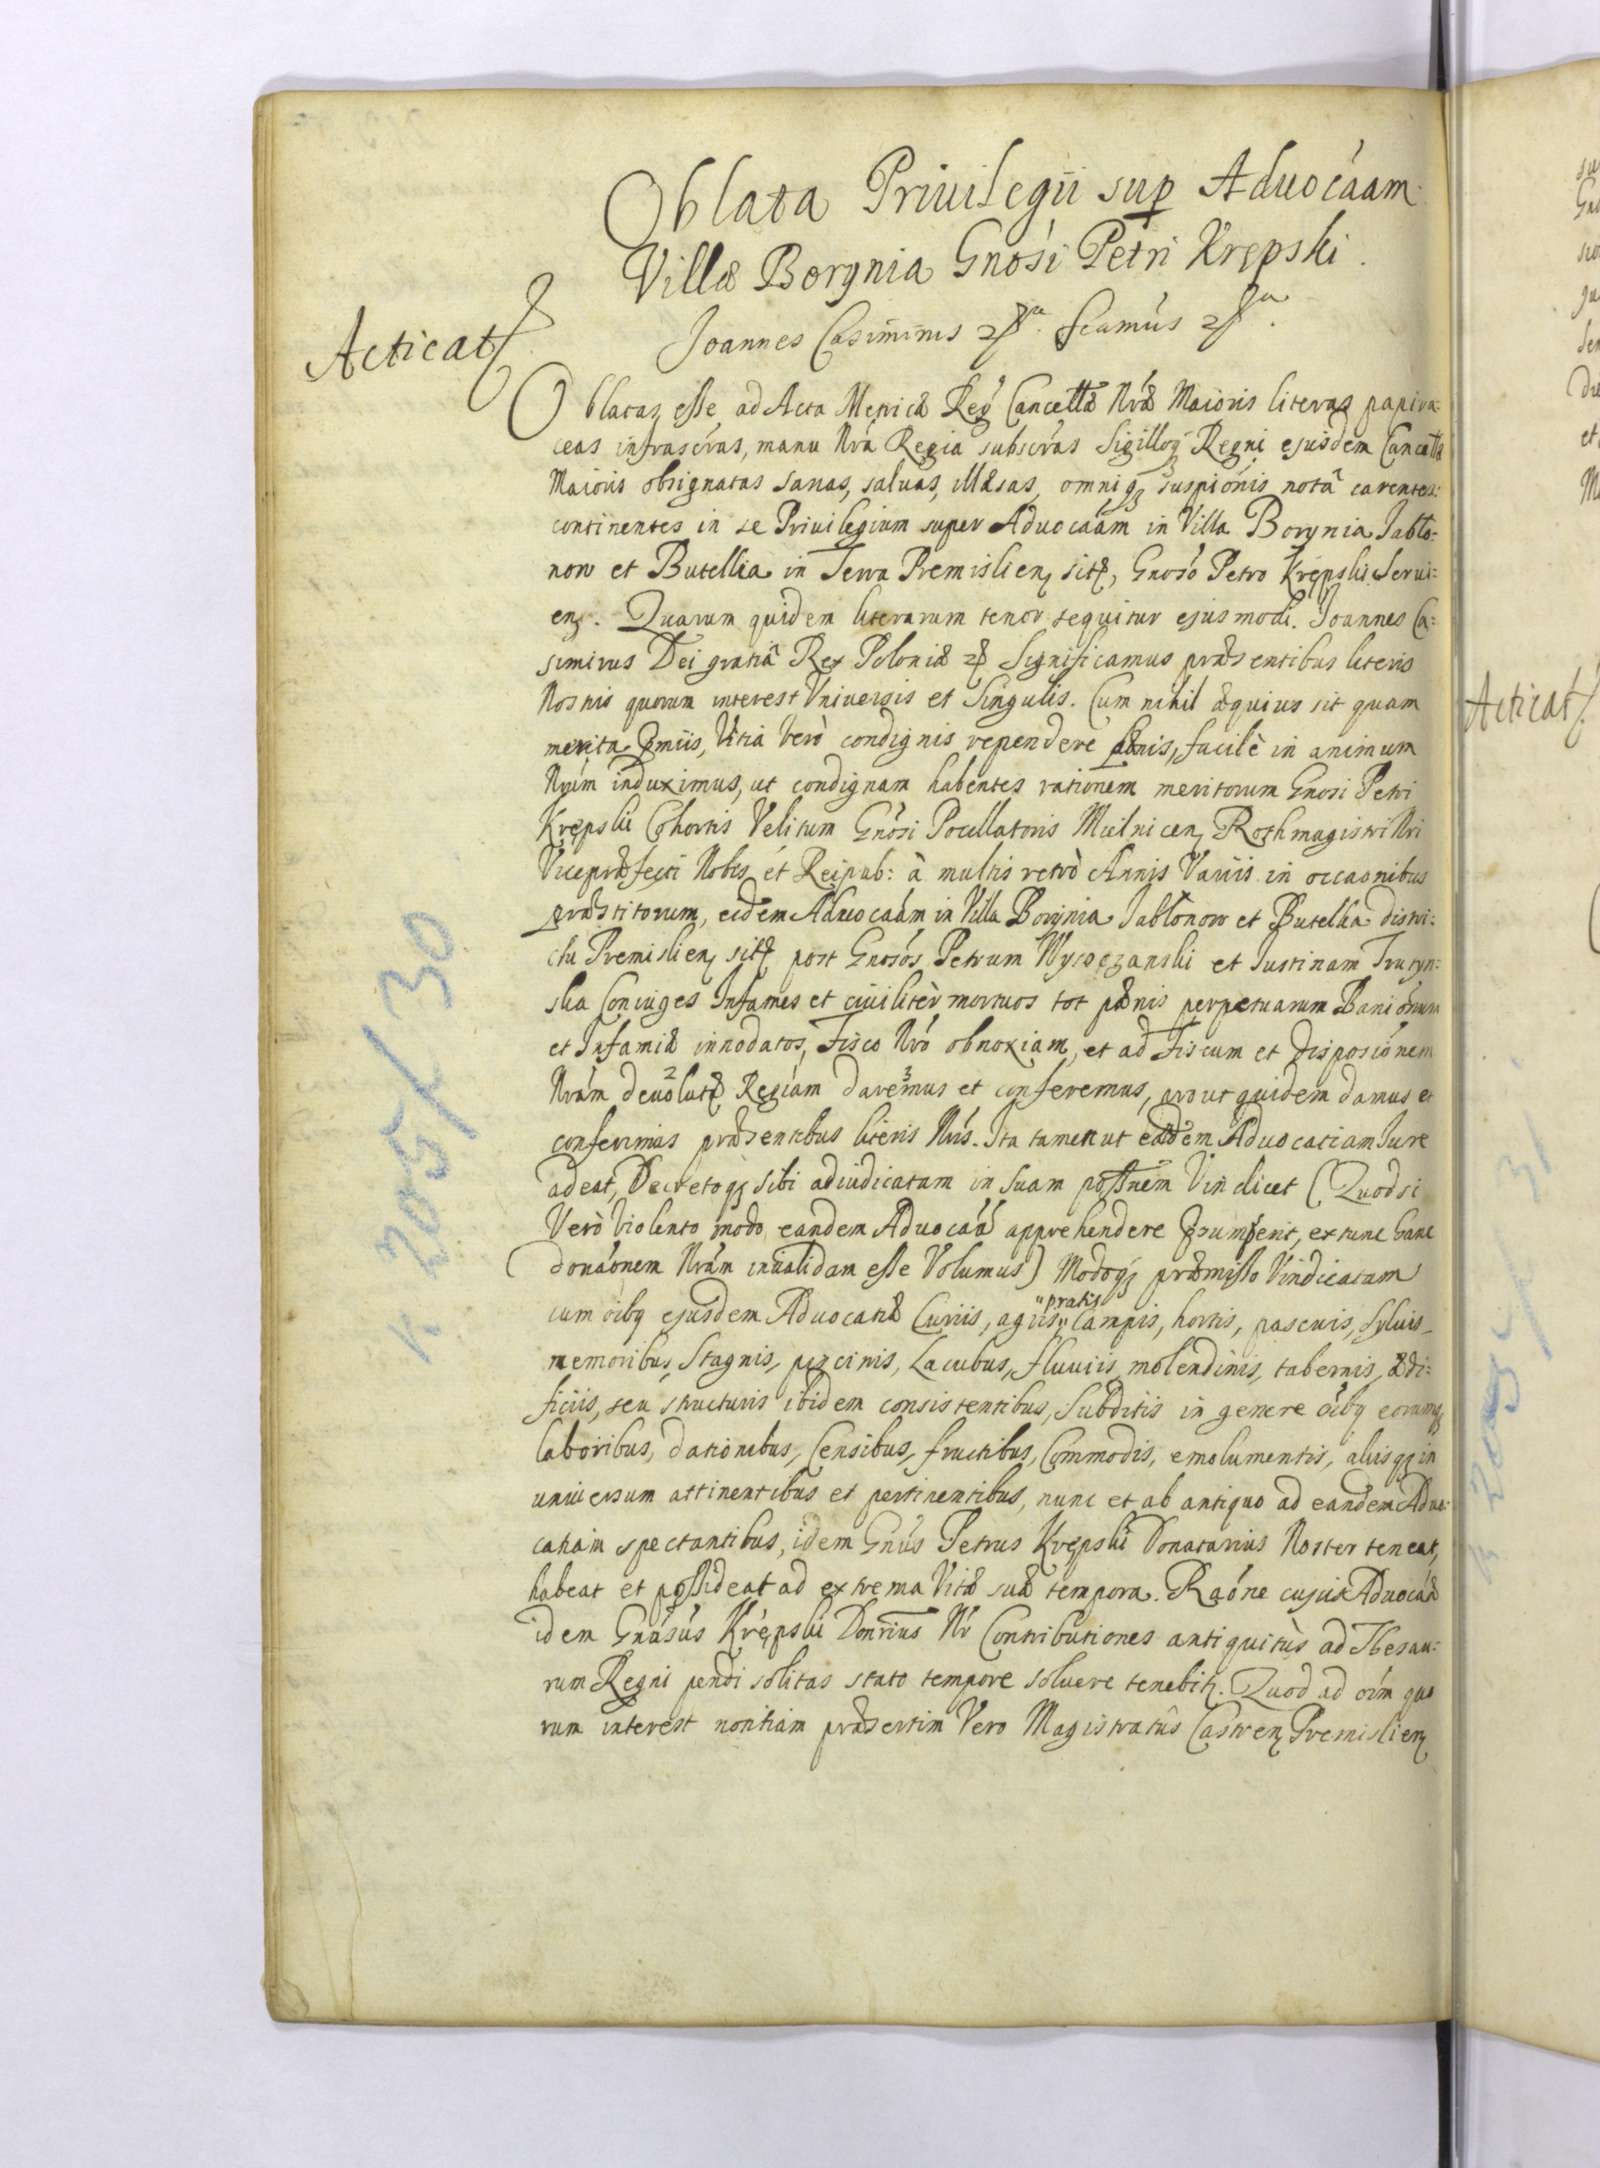 Oblata Priuilegii sup Aduocaam
Villæ Borynia Gnosi Petri Krępski.
Acticat
Joannes Casimirus Scamus
Oblatas esse ad Acta Metricæ Reg Cancellæ Nræ Maioris literas papira:
ceas infrascras, manu Nra Regia subscras Sigilloq Regni ejusdem Cancellæ
Maioris obsignatas sanas, saluas, illæsas, omniq suspionis notâ carentes:
continentes in se Priuilegium super Aduocaam in Villa Borynia Jabło:
now et Butellia in Terra Premislien sitæ, Gnoso Petro Krępski Serui:
en. Quarum quidem literarum tenor sequitur ejusmodi. Joannes Ca:
simirus Dei gratiâ Rex Poloniæ Significamus præsentibus literis
Nostris quorum interest Vniuersis et Singulis. Cum nihil æquius sit quam
merita pmiis, Vitia Verò condignis rependere pænis, facilè in animum
Nrum induximus, ut condignam habentes rationem meritorum Gnosi Petri
Krępski Cohortis Velitum Gnosi Pocillatoris Mielnicen Rothmagistri Nri
Vicepræfecti Nobis et Reipub: à multis retrò Annis Variis in occaonibus
præstitorum, eidem Aduocaam in Villa Borynia Jabłonow et Butellia distri:
ctu Premislien sitæ post Gnosos Petrum Wysoczanski et Justinam Truryn:
ska Coniuges Infames et ciuiliter mortuos tot pænis perpetuarum Banionum
et Infamiæ innodatos, Fisco Nro obnoxiam, et ad Fiscum et disposionem
Nram deuolutæ 2 Regiam daremus 3 et conferemus, prout quidem damus et
conferimus præsentibus literis Nris. Ita tamen ut eadem Aduocatiam Jure
adeat, Decretoq sibi adiudicatam in suam possnem Vindicet (Quodsi
Verò Violento modo eandem Aduocaa apprehendere psumpserit, extunc hanc
donaonem Nram inualidam esse Volumus) Modoq præmisso Vindicatam
"pratis
cum oibq ejusdem Aduocatiæ Curiis, agris," campis, hortis, pascuis, syluis,
nemoribus, Stagnis, piscinis, Lacubus, fluuiis, molendinis, tabernis, ædi:
ficiis, seu structuris ibidem consistentibus, Subditis in genere oibq eorumq
laboribus, dationibus, Censibus, fructibus, Commodis, emolumentis, aliisqq in
uniuersum attinentibus et pertinentibus, nunc et ab antiquo ad eandem Aduo:
catiam spectantibus, idem Gnus Petrus Krępski Donatarius Noster teneat,
habeat et possideat ad extrema Vitæ suæ tempora. Raone cujus Aduocaæ
idem Gnasus Krępski Donrius Nr Contributiones antiquitùs ad Thesau:
rum Regni pendi solitas stato tempore soluere tenebit. Quod ad oim quo
rum interest notitiam præsertim Vero Magistratûs Castren Premislien
K 205/30
Acticat